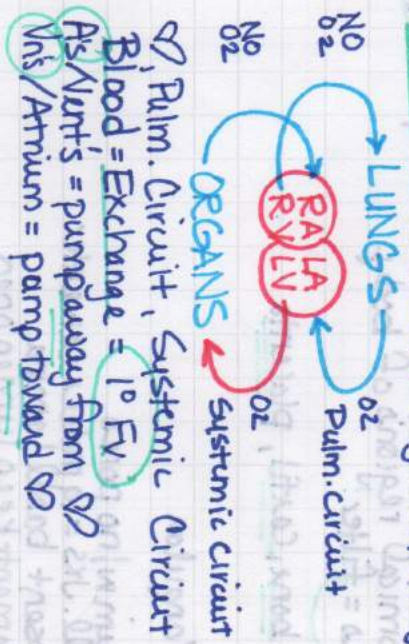 LUNGS
NO O2
Pulm. circuit
O2
RA LA
RV LV
NO O2
O2
ORGANS
Systemic circuit
♡, Pulm. Circuit, Systemic Circuit
Blood = Exchange = 1° Fx
A's/Vent's = pump away from ♡
Vn's/Atrium = pump toward ♡